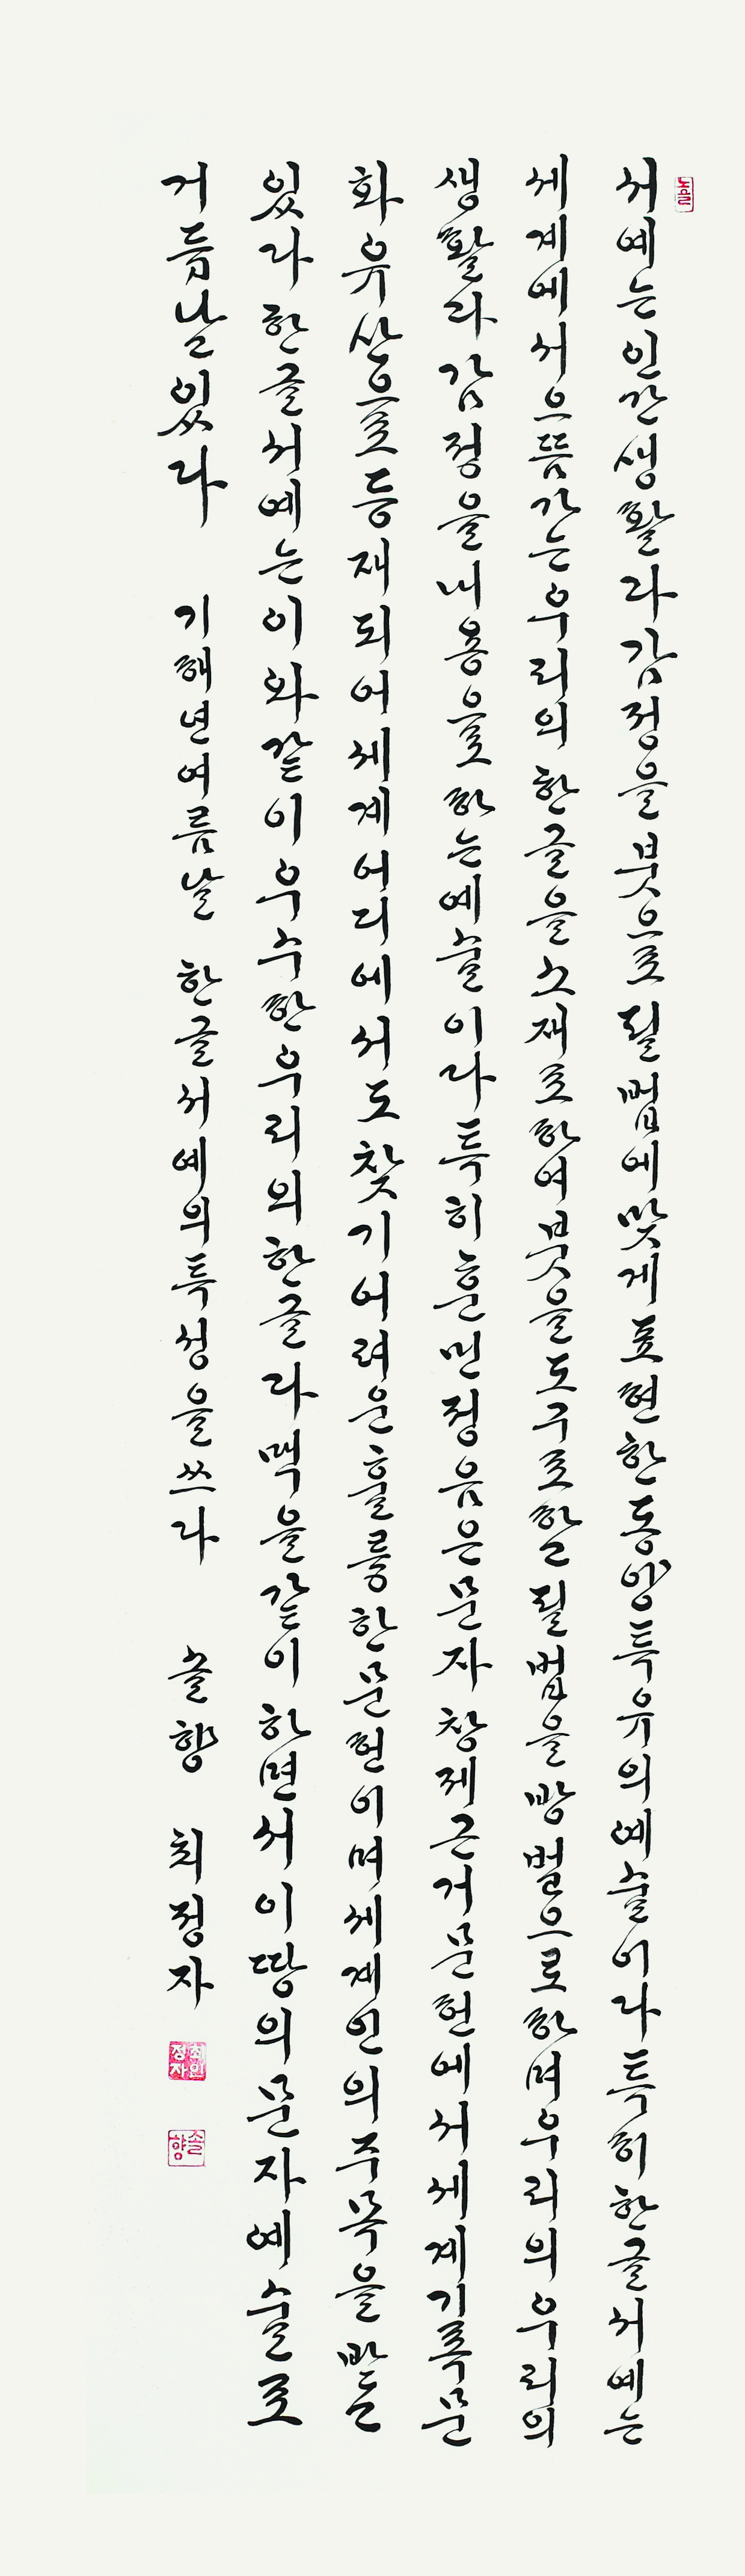 서예는인간생활과감정을붓으로필법에맞게표현한동양특유의예술이다특히한글서예는
세계에서으뜸가는우리의한글을소재로하여붓을도구로한필법을방법으로하며우리의우리의
생활과감정을내용으로하는예술이다특히훈민정음은문자창제근거문헌에서세계기록문
화유산으로등재되어세계어디에서도찾기어려운훌륭한문헌이며세계인의주목을받고
있다한글서예는이와같이우수한우리의한글과맥을같이하면서이땅의문자예술로
거듭나고있다 기해년여름날 한글서예의특성을쓰다 솔향 최정자
최정자인
솔향